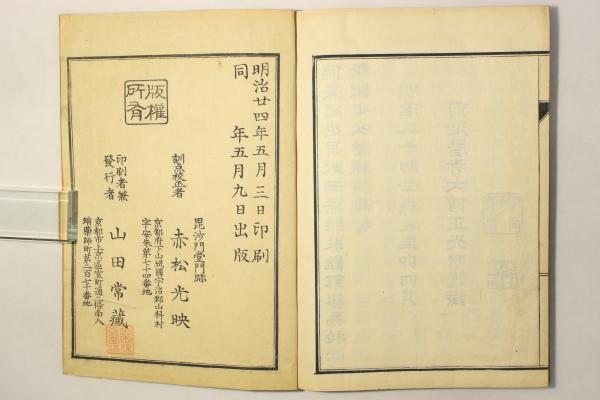 明治廿四年五月三日印刷
同年五月九日出版
版權所有
訓点校正者
毘沙門堂門跡
赤松光映
京都府下山城國宇治郡山科村
字安朱第七十四番地
印刷者兼
發行者
山田常藏
京都市上京區室町通二條南入
蛸藥師町第二百七十番地